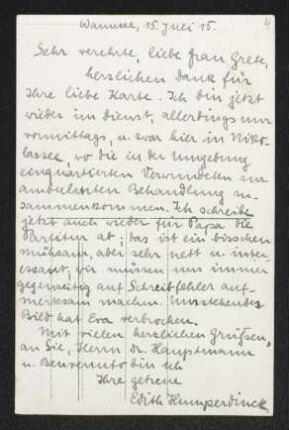 4
Wannsee, 15. Juli 15.
Sehr verehrte, liebe Frau Grete,
herzlichen Dank für
Ihre liebe Karte. Ich bin jetzt
wieder im Dienst, allerdings nur
vormittags, u. zwar hier in Niko-
lassee, wo die in der Umgebung
einquartierten Verwundeten zu
ambulanten Behandlung zu-
sammenkommen. Ich schreibe
jetzt auch wieder für Papa die
Partitur ab; das ist ein bisschen
mühsam, aber sehr nett u. inter-
essant, wir müssen uns immer
gegenseitig auf Schreibfehler auf-
merksam machen. Umstehendes
Bild hat Eva verbrochen.
Mit vielen herzlichen Grüßen,
an Sie, Herrn Dr. Hauptmann
u. Benvenuto bin ich
Ihre getreue
Edith Humperdinck.